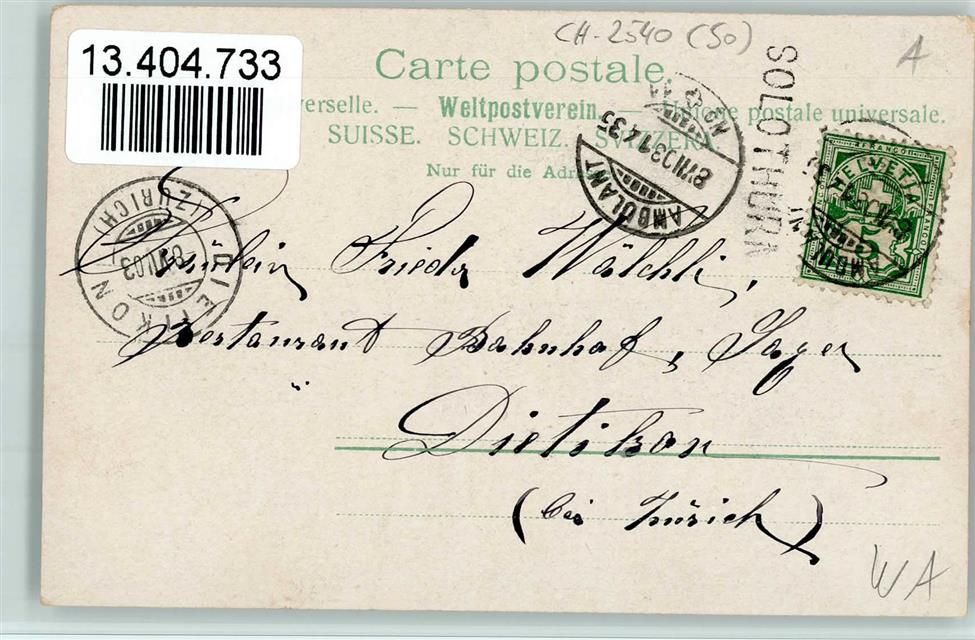 CH-2540 (SO)
A
13.404.733
Carte postale.
verselle. — Weltpostverein. — Unione postale universale.
SUISSE. SCHWEIZ. SVIZZERA.
Nur für die Adresse
SOLOTHURN
AMBULANT
8 VII 03 14 35
No
HELVETIA
FRANCO
5
DIETIKON
(ZÜRICH)
8.VII.03
Fräulein Frieda Wälchli,
Restaurant Bahnhof, Sager
Dietikon
(bei Zürich)
WA